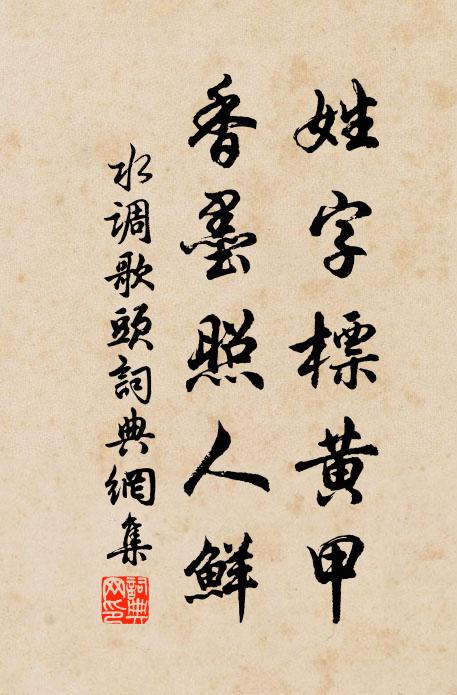 姓字標黄甲
香墨照人鮮
水调歌頭詞典網集
詞典
网印